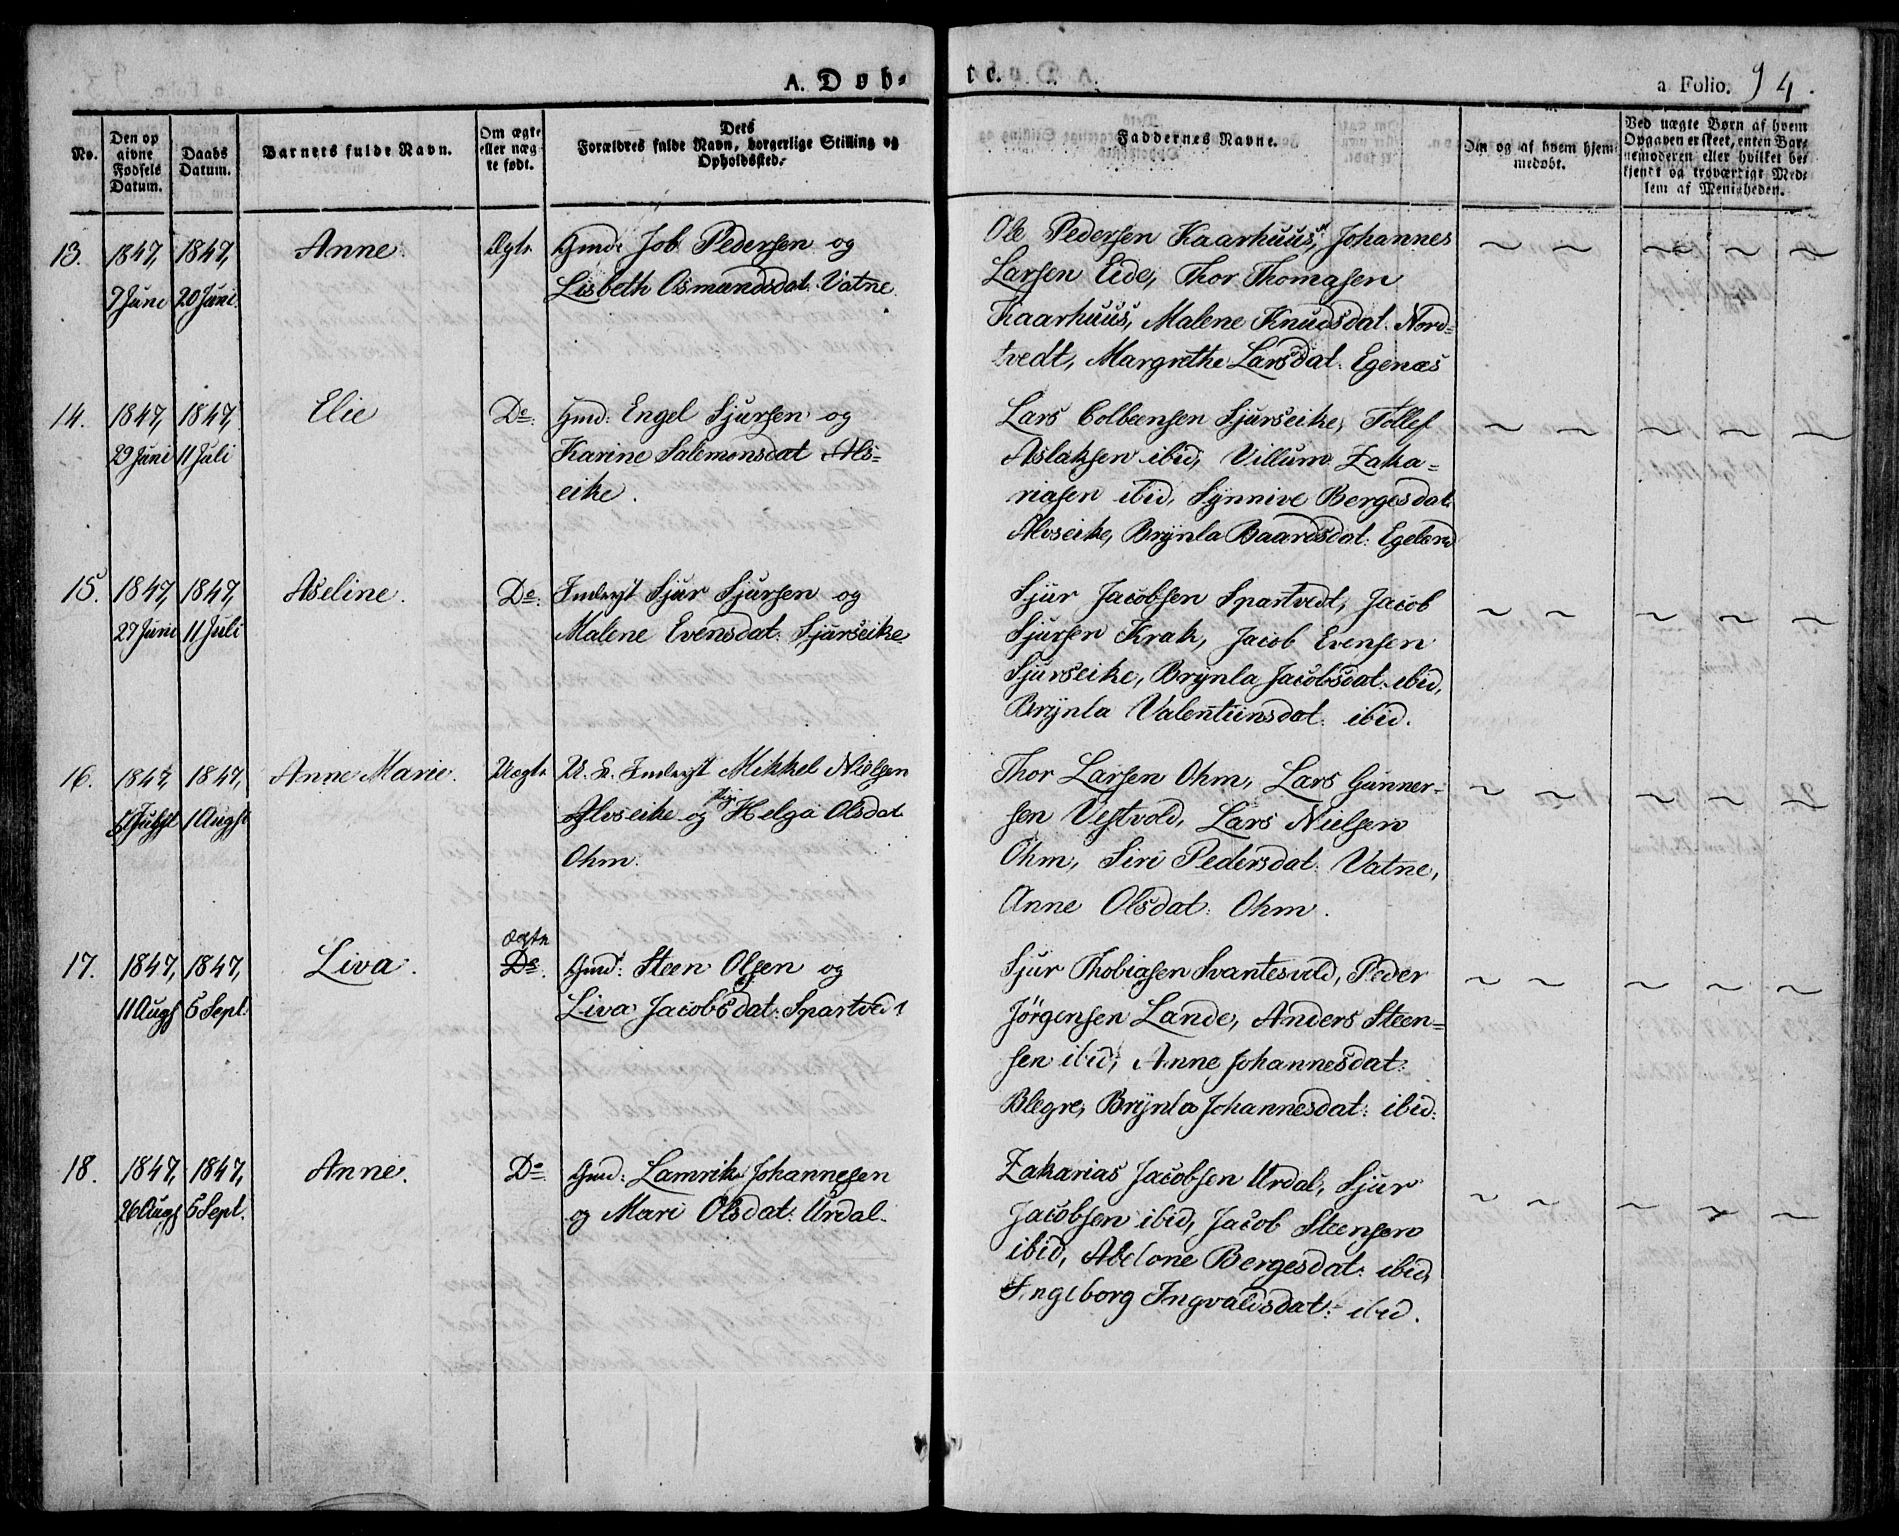 A. Døb-
te.
a. Folio. 94.
No.
Den op
givne
Fødsels
Datum.
Daabs
Datum.
Barnets fulde Navn.
Om ægte
eller uæg-
te født.
Dets
Forældres fulde Navn, borgerlige Stilling og
Opholdssted.
Faddernes Navne.
Om og af hvem hjem-
medøbt.
Ved uægte Børn af hvem
Opgaven er skeet, enten Bar-
nemoderen eller hvilket be-
kjendt og troværdigt Med-
lem af Menigheden.
13. 1847, 1847, Anne. Ægte Gmd: Job Pedersen og
7 Juni 20 Juni Lisbeth Osmundsdat: Vatne.
Ole Pedersen Kaarhuus, Johannes
Larsen Eide, Thor Thomasen
Kaarhuus, Malene Knudsdat. Nord-
tvedt, Margrethe Larsdat: Egenæs
14. 1847, 1847, Elie Do: Gmd: Engel Sjursen og
29 Juni 11 Juli Karine Salemonsdat Als-
eike.
Lars Colbeensen Sjurseike, Tollef
Aslaksen ibid, Villum Zaka-
riasen ibid, Synnive Bergesdat:
Alvseike, Brynla Baardsdat: Egeland
15. 1847, 1847, Aseline. Do: Inderst Sjur Sjursen og
27 Juni 11 Juli Malene Evensdat: Sjurseike
Sjur Jacobsen Spartvedt, Jacob
Sjursen Krak, Jacob Evensen
Sjurseike, Brynla Jacobsdat: ibid,
Brynla Valentinsdat: ibid.
16. 1847, 1847, Anne Marie. Uægte U. K. Inderst Mikkel Nielsen
Juli 1 Augst Alvseike og Pige Helga Olsdat
Ohm.
Thor Larsen Ohm, Lars Gunner-
sen Vestvold, Lars Nielsen
Ohm, Siri Pedersdat: Vatne,
Anne Olsdat: Ohm.
ægte
17. 1847, 1847, Liva. Do. Gmd: Steen Olsen og
11 Augs 5 Sept. Liva Jacobsdat: Spartvedt
Sjur Thobiasen Svantesvold, Peder
Jörgensen Lande, Anders Steen-
sen ibid, Anne Johannesdat:
Blegre, Brynla Johannesdat: ibid:
18. 1847, 1847, Anne. Do Gmd: Lamrik Johannesen
26 Augs 5 Sept. og Mari Olsdat: Urdal.
Zakarias Jacobsen Urdal, Sjur
Jacobsen ibid, Jacob Steensen
ibid, Abelone Bergesdat: ibid,
Ingeborg Ingvaldsdat: ibid.